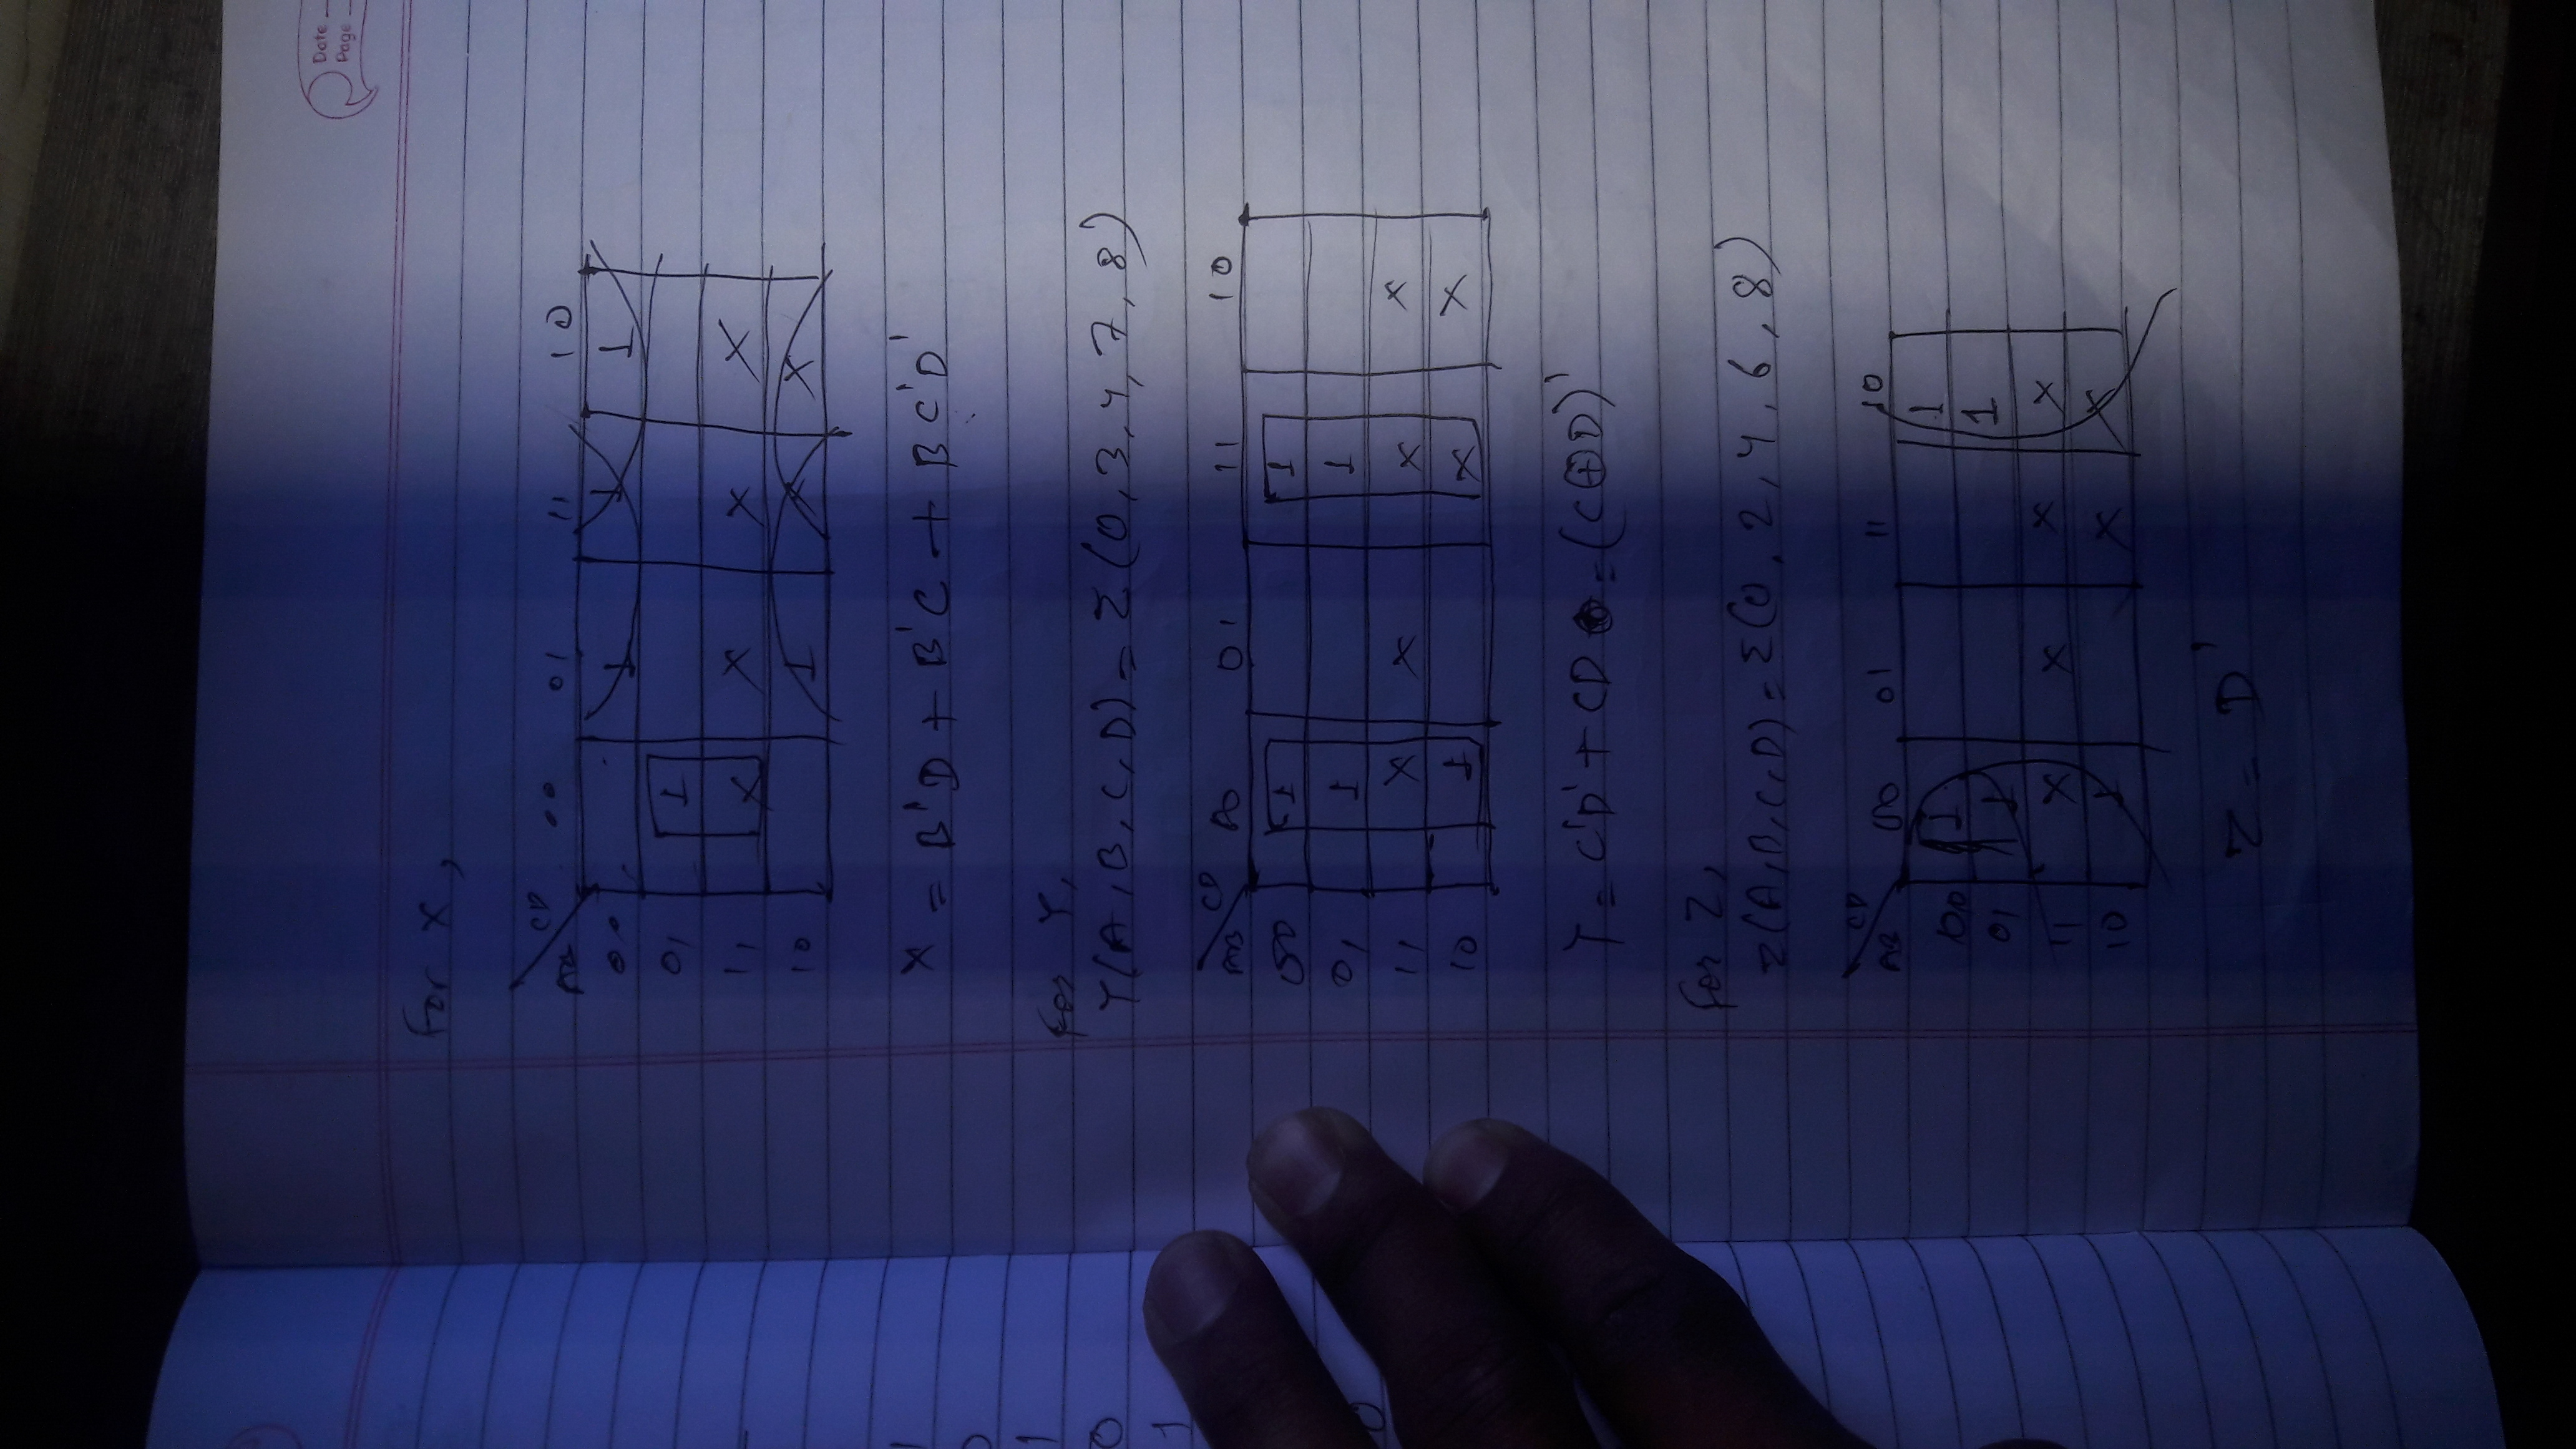 Date
Page
For X,
CD 00 01 11 10
AB
00 1 1 1
01 1
11 X X X X
10 1 X X
X = B'D + B'C + BC'D'
For Y,
Y(A, B, C, D) = Σ(0, 3, 4, 7, 8)
CD 00 01 11 10
AB
00 1 1
01 1 1
11 X X X X
10 1 X X
Y = C'D' + CD = (C⊕D)'
For Z,
Z(A, B, C, D) = Σ(0, 2, 4, 6, 8)
CD 00 01 11 10
AB
00 1 1
01 1 1
11 X X X X
10 1 X X
Z = D'
1
0
1
0
1
0